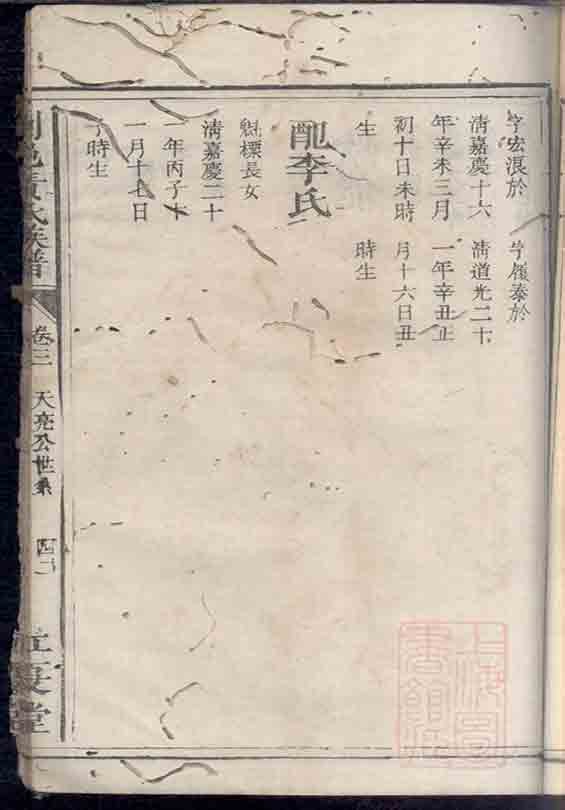 字宏浪於
清嘉慶十六
年辛未三月
初十日未時
生
字履泰於
清道光二十
一年辛丑正
月十六日丑
時生
配李氏
懋標長女
清嘉慶二十
一年丙子十
一月十七日
時生
黃氏族譜
卷三
天亮公世系
堂
上海圖書館藏